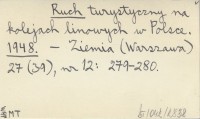 Ruch turystyczny na
kolejach linowych w Polsce.
1948. – Ziemia (Warszawa)
27 (39), nr 12: 279-280.
MT